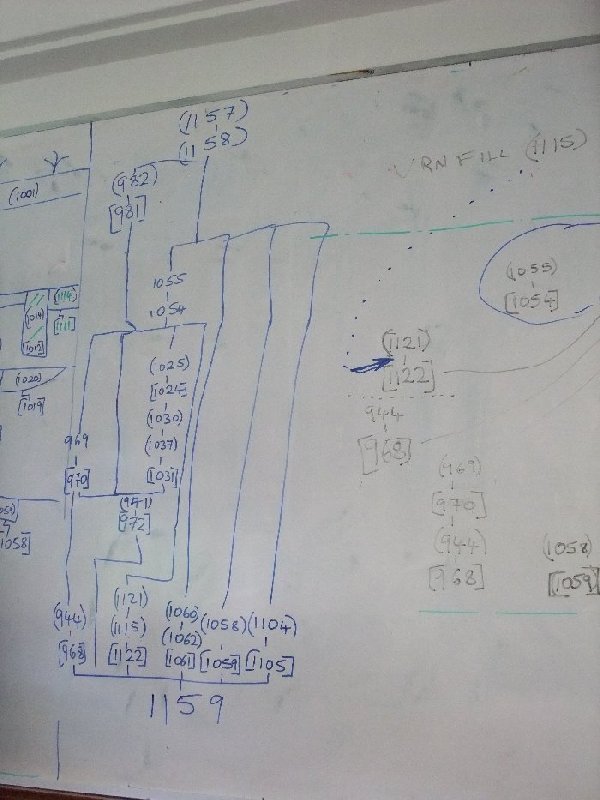 (1157)
(1158)
URN FILL (1115)
(982)
[981]
(1001)
1055
1054
(1055)
[1054]
(1114)
[1111]
(1121)
[1122]
(1020)
[1019]
(1025)
[1030)
(1037)
[1031]
944
[968]
969
[970]
(969)
[970]
(944)
[968]
(941)
[972]
1058]
(1058)
[1059]
(944)
[968]
(1121)
(1115)
[1122]
(1060)
(1062)
[1061]
(1058)
[1059]
(1104)
[1105]
1159